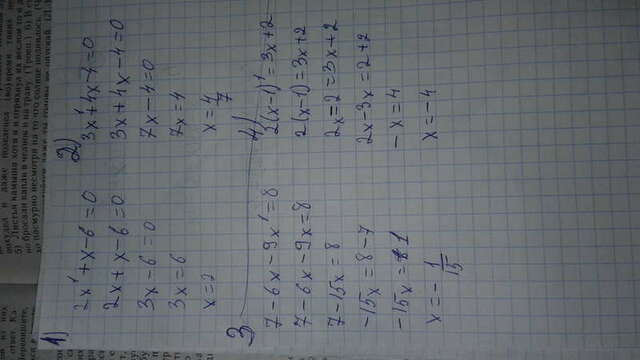 1)
2x¹ + x - 6 = 0
2x + x - 6 = 0
3x - 6 = 0
3x = 6
x = 2
2)
3x¹ + 4x - 4 = 0
3x + 4x - 4 = 0
7x - 4 = 0
7x = 4
x = 4/7
3)
7 - 6x - 9x¹ = 8
7 - 6x - 9x = 8
7 - 15x = 8
-15x = 8 - 7
-15x = 1
x = - 1/15
4)
2(x-1)¹ = 3x + 2
2(x-1) = 3x + 2
2x = 2 = 3x + 2
2x - 3x = 2 + 2
- x = 4
x = -4